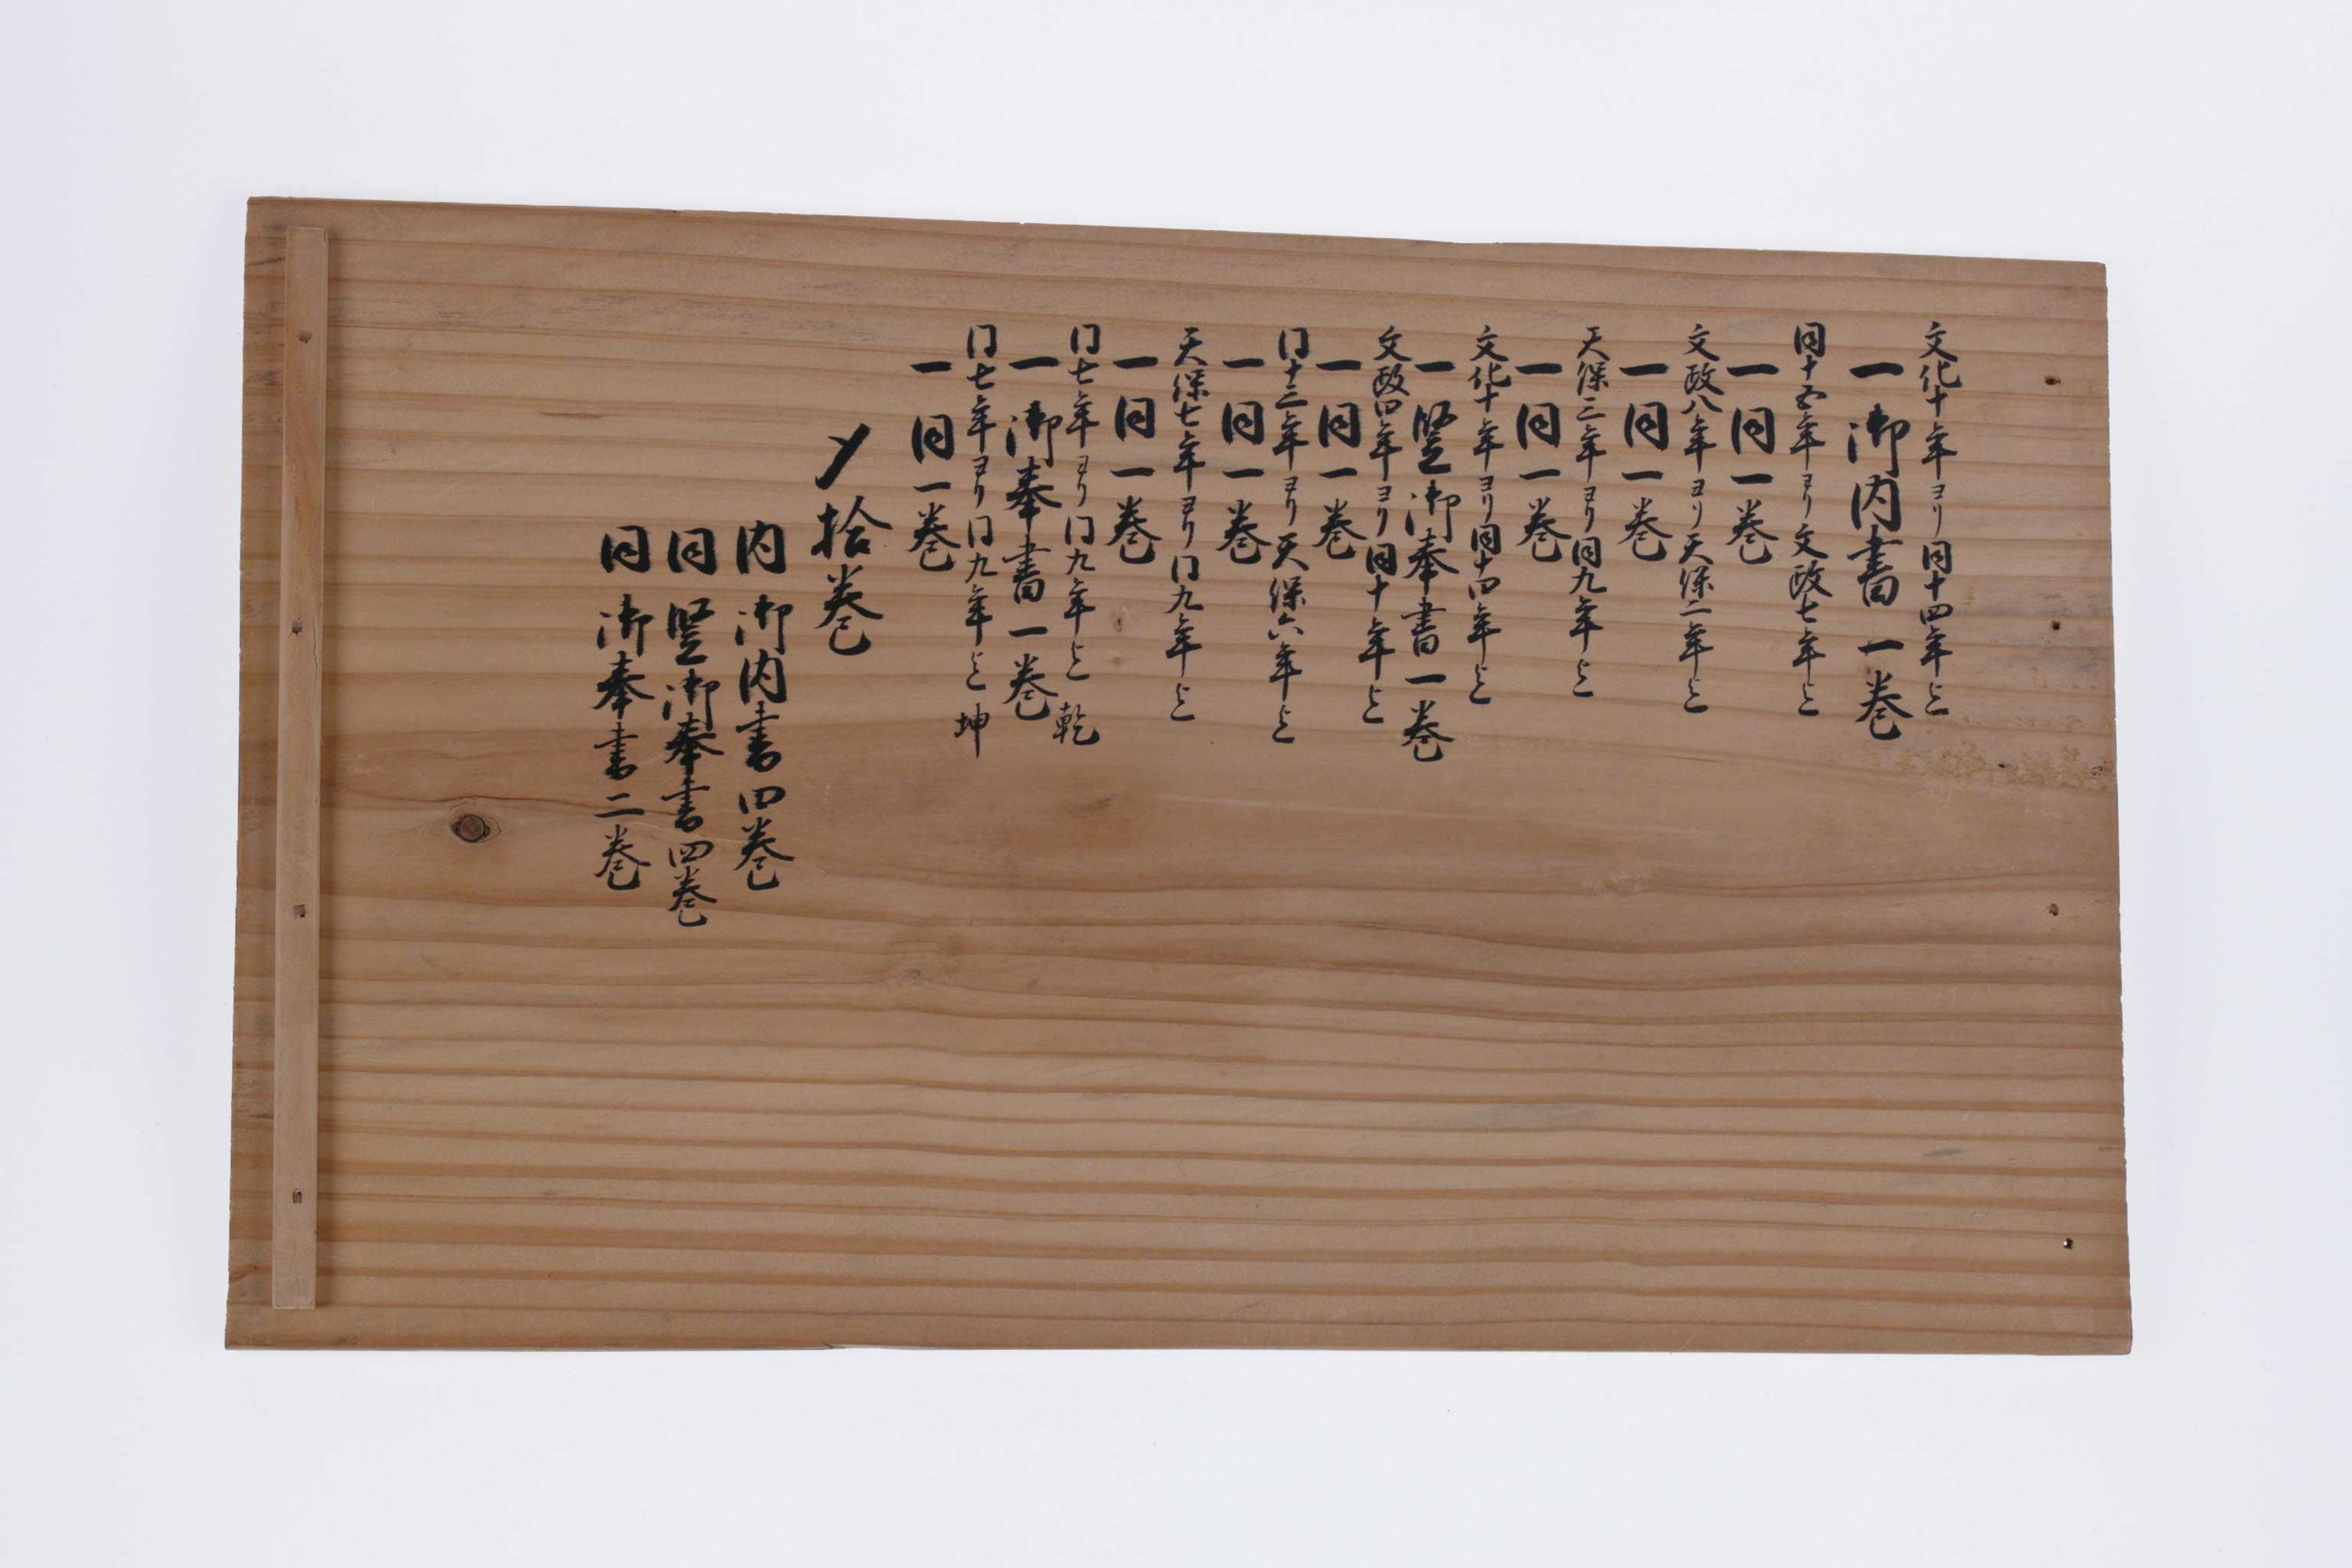 文化十年ヨリ同十四年迄
一御内書一巻
同十五年ヨリ文政七年迄
一同一巻
文政八年ヨリ天保二年迄
一同一巻
天保三年ヨリ同九年迄
一同一巻
文化十年ヨリ同十四年迄
一竪御奉書一巻
文政四年ヨリ同十年迄
一同一巻
同十三年ヨリ天保六年迄
一同一巻
天保七年ヨリ同九年迄
一同一巻
同七年ヨリ同九年迄 乾
一御奉書一巻
同七年ヨリ同九年迄 坤
一同一巻
〆拾巻
内御内書四巻
同竪御奉書四巻
同御奉書二巻